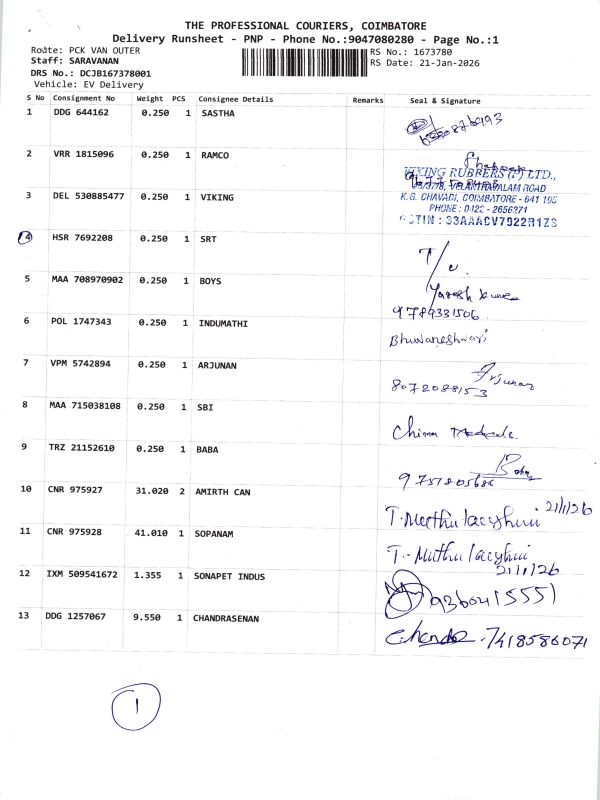 THE PROFESSIONAL COURIERS, COIMBATORE
Delivery Runsheet - PNP - Phone No.:9047080280 - Page No.:1
Route: PCK VAN OUTER
RS No.: 1673780
Staff: SARAVANAN
RS Date: 21-Jan-2026
DRS No.: DCJB167378001
Vehicle: EV Delivery
S No Consignment No Weight PCS Consignee Details Remarks Seal & Signature
1 DDG 644162 0.250 1 SASTHA
2 VRR 1815096 0.250 1 RAMCO
VIKING RUBBERS (P) LTD.,
3 DEL 530885477 0.250 1 VIKING
K.G. CHAVADI, COIMBATORE - 641 105
PHONE : 0422 - 2656271
GSTIN : 33AAACV7922R1ZS
4 HSR 7692208 0.250 1 SRT
5 MAA 708970902 0.250 1 BOYS
9789331506
6 POL 1747343 0.250 1 INDUMATHI
Bhuvaneshwari
7 VPM 5742894 0.250 1 ARJUNAN
Arjunan
8072088153
8 MAA 715038108 0.250 1 SBI
9 TRZ 21152610 0.250 1 BABA
10 CNR 975927 31.020 2 AMIRTH CAN
21/1/26
11 CNR 975928 41.010 1 SOPANAM
21/1/26
12 IXM 509541672 1.355 1 SONAPET INDUS
9360415551
13 DDG 1257067 9.550 1 CHANDRASENAN
7418586071
1